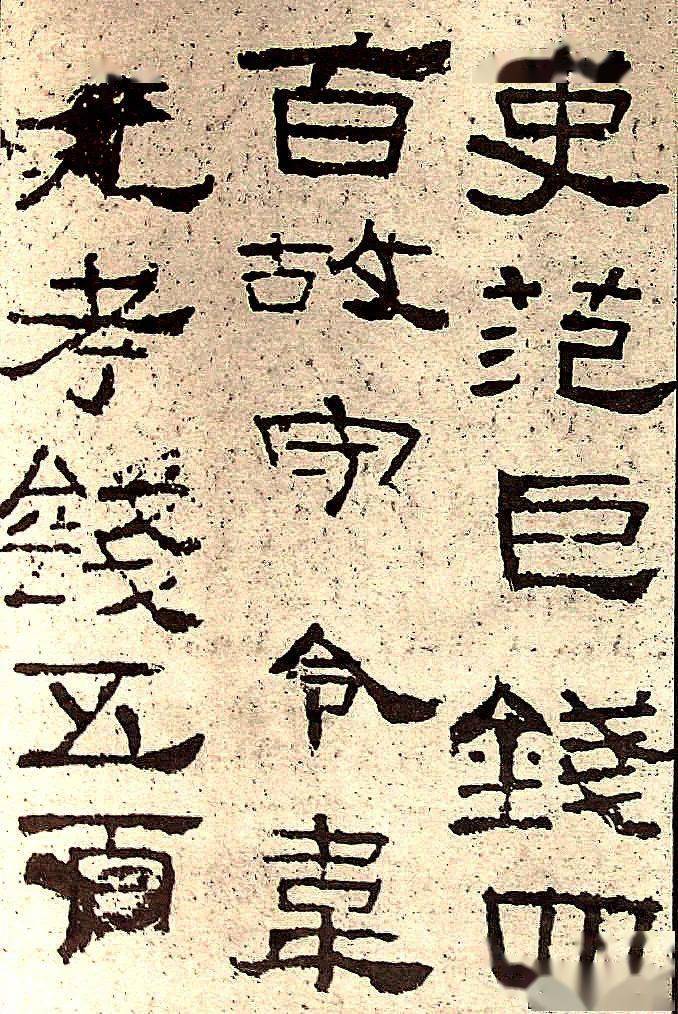 吏范巨錢四
百故守令韋
元考錢五百